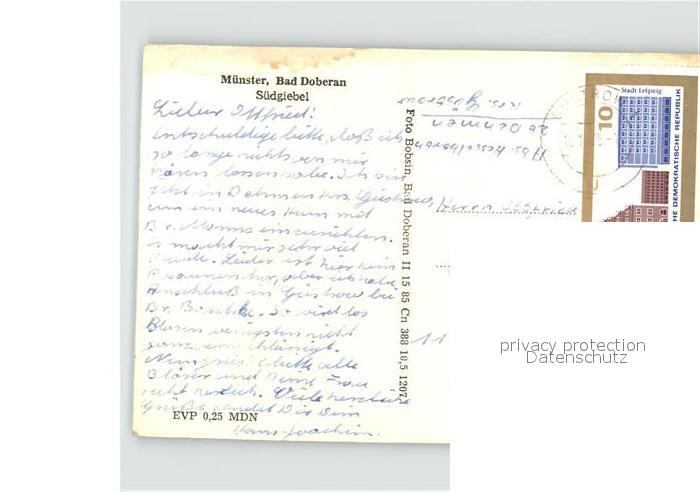 Münster, Bad Doberan
Südgiebel
Lieber Ottfried!
Entschuldige bitte, daß ich
so lange nichts von mir
hören lassen habe. Ich bin
jetzt in Dehmen Krs. Güstrow,
um ein neues Heim mit
Br. einzurichten.
Es macht mir sehr viel
Freude. Leider ist hier kein
Posaunenchor, aber ich habe
Anschluß in Güstrow bei
Br.
Blasen wenigstens nicht
ganz vernachlässigt.
Nun grüß bitte alle
Bläser und Deine Frau
recht herzlich. Viele herzliche
Grüße sendet Dir Dein
Hans-Joachim.
EVP 0,25 MDN
Foto Bobsin, Bad Doberan II 15 85 Cn 388 10,5 1207
Krs. Güstrow
Dehmen
Herrn
11
Stadt Leipzig
10
DEMOKRATISCHE REPUBLIK
privacy protection
Datenschutz